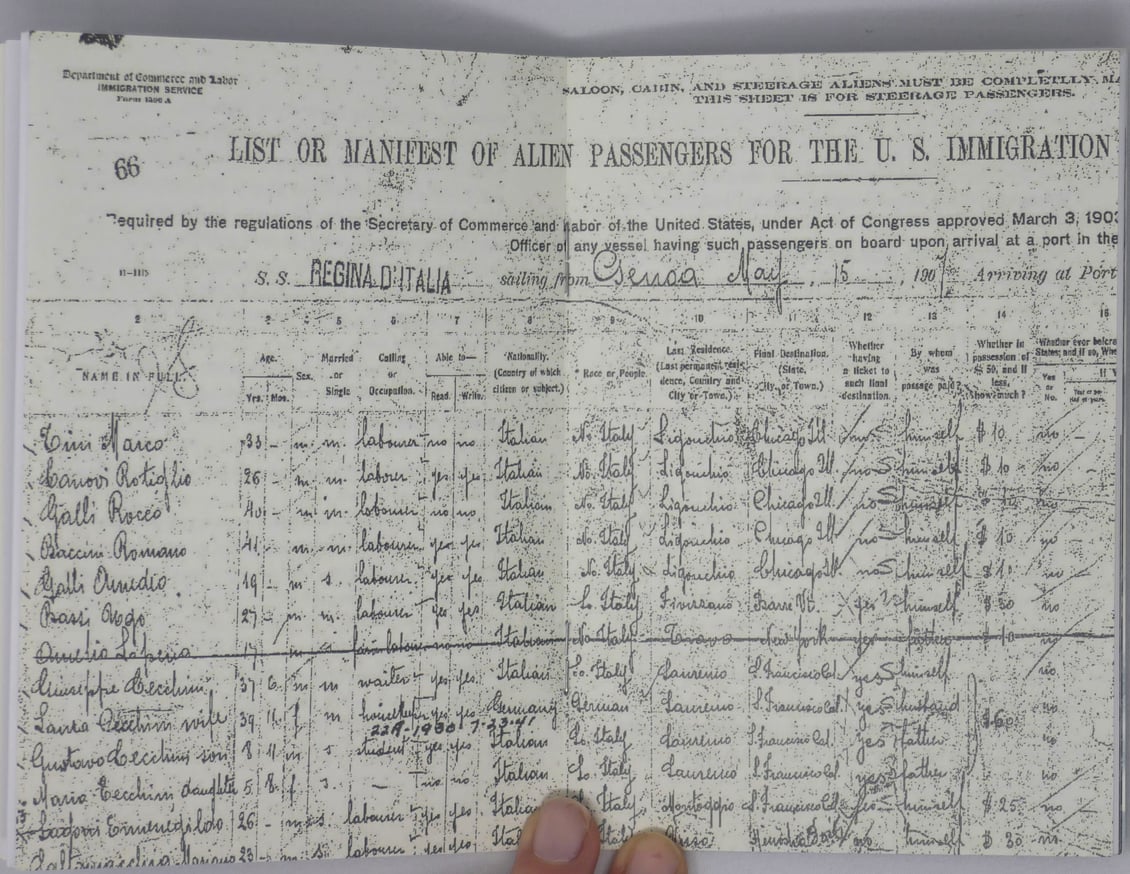 Department of Commerce and Labor
IMMIGRATION SERVICE
Form 1500 A
SALOON, CABIN, AND STEERAGE ALIENS MUST BE COMPLETELLY MA
THIS SHEET IS FOR STEERAGE PASSENGERS.
66
LIST OR MANIFEST OF ALIEN PASSENGERS FOR THE U. S. IMMIGRATION
equired by the regulations of the Secretary of Commerce and Labor of the United States, under Act of Congress approved March 3, 1903
Officer of any vessel having such passengers on board upon arrival at a port in the
S. S. REGINA D'ITALIA sailing from Genoa May, 15, 190 Arriving at Port
2 5 6 7 8 9 10 11 12 13 14
NAME IN FULL. Age. Yrs. Mos. Sex. Married or Single Calling or Occupation. Able to— Read. Write. Nationality. (Country of which citizen or subject.) Race or People. Last Residence. (Last permanent residence, Country and City or Town.) Final Destination. (State, City or Town.) Whether having a ticket to such final destination. By whom was passage paid? Whether in possession of $50, and if less, how much? Whether ever before Yes or No.
Tini Marco 33 - m m labourer no no Italian No. Italy Ligonchio Chicago Ill no himself $ 10 no
26 - m m labourer yes yes Italian No. Italy Ligonchio Chicago Ill no himself $ 10 no
Galli Rocco 40 - m m labourer no no Italian No. Italy Ligonchio Chicago Ill no himself $ 10 no
Baccini Romano 41 - m m labourer yes yes Italian No. Italy Ligonchio Chicago Ill no himself $ 10 no
Galli Amedio 19 - m s labourer yes yes Italian No. Italy Ligonchio Chicago Ill no himself $ 10 no
Bassi 27 - m m labourer yes yes Italian So. Italy Fivizzano Barre Vt. yes himself $ 30 no
Amelia Italian No. Italy New York yes father $ 10 no
Giuseppe Cecchini 37 6 m m waiter yes yes Italian So. Italy Laurenio S. Francisco Cal. yes himself no
Laura Cecchini wife 39 11 f m housekeeper yes yes Germany German Laurenio S. Francisco Cal. yes husband $60 no
7-23-41
Gustavo Cecchini son 8 11 m s student yes yes Italian So. Italy Laurenio S. Francisco Cal. yes father no
Maria Cecchini daughter 5 8 f s - no no Italian So. Italy Laurenio S. Francisco Cal. yes father no
26 - m s labourer yes yes Italian Italy S. Francisco Cal yes himself $ 25 no
23 - m s labourer yes yes no himself $ 30 no